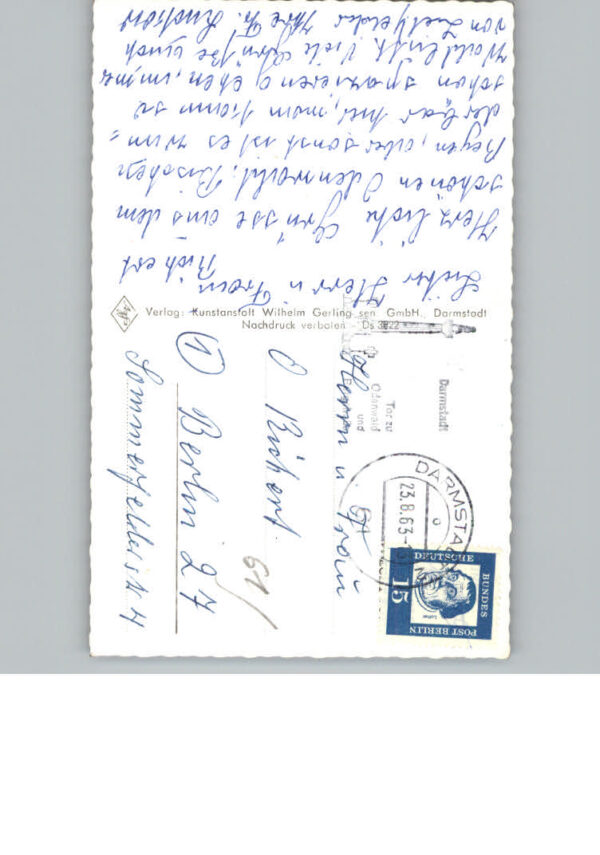 Lieber Herr u. Frau
Richert
Herzliche Grüsse aus dem
schönen Odenwald. Bischen
Regen, aber sonst ist es wun=
derbar hier, man kann so
schön spazieren gehen, immer
Wald. Viele Grüße auch
von Ihre Fr.
Verlag: Kunstanstalt Wilhelm Gerling sen. GmbH., Darmstadt
Nachdruck verboten - Ds 3822
Darmstadt
Tor zu
Odenwald
und
DARMSTADT
23.8.63
DEUTSCHE
BUNDES
POST BERLIN
15
Luther
Herrn u Frau
O Richert
61/
① Berlin 27
Sommerfelderstr. 4